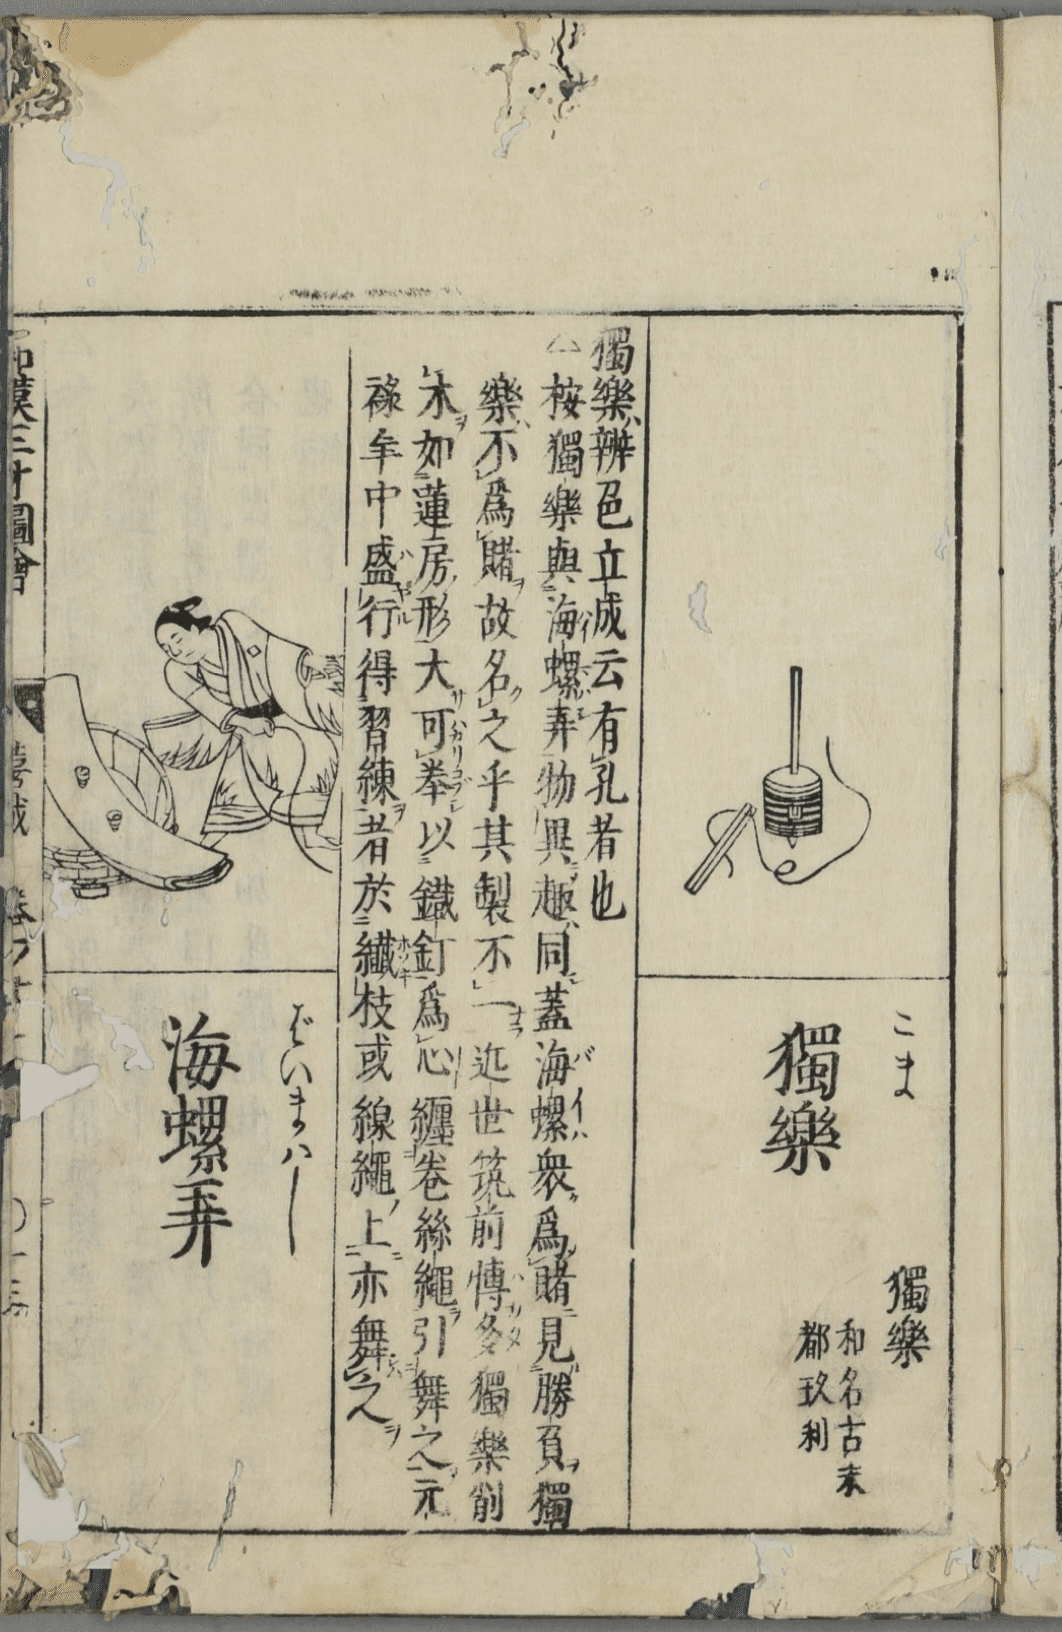 こま
獨樂
獨樂
和名古末
都玖利
獨樂ハ辨色立成云有孔者也
△桉獨樂與海螺弄物異趣同蓋海螺衆爲賭見勝負獨
樂不爲賭故名之乎其製不一近世筑前愽多獨樂削
木如蓮房形大可拳以鐵釘爲心纒卷絲繩引舞之元
祿年中盛行得習練者於纎枝或線繩上亦舞之
ばいまハし
海螺弄
和漢三才圖會